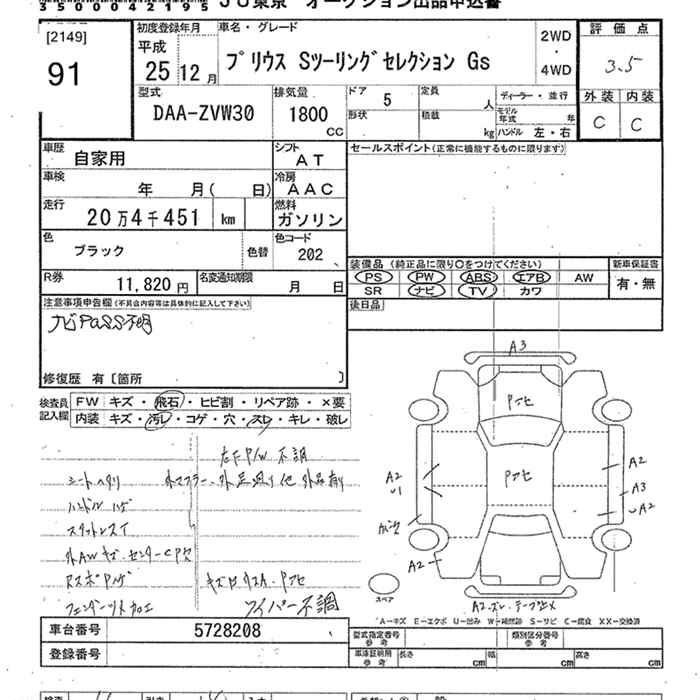 350000421195 JU東京 オークション出品申込書
[2149]
91
初度登録年月
平成
25 12月
車名・グレード
プリウス Sツーリングセレクション Gs
2WD
・
4WD
評価点
3.5
外装 内装
C C
型式
DAA-ZVW30
排気量
1800
CC
ドア 5
形状
定員 人
積載 kg
ディーラー・並行
モデル年式 年
ハンドル 左・右
車歴 自家用
シフト AT
セールスポイント(正常に機能するものに限ります)
車検 年 月( 日)
冷房 AAC
走行 20万4千451 km
燃料 ガソリン
色 ブラック
色替
色コード 202
装備品 (純正品に限り○をつけてください)
新車保証書
PS PW ABS エアB AW
有・無
SR ナビ TV カワ
R券 11,820円
名変通知期限 月 日
後日品
注意事項申告欄(不具合内容等は具体的に記入して下さい)
ナビPASS不明
修復歴 有〔箇所 〕
検査員記入欄
FW キズ・飛石・ヒビ割・リペア跡・×要
内装 キズ・汚レ・コゲ・穴・スレ・キレ・破レ
左F P/W 不調
シートヘタリ
ハンドルハゲ
外AWキズ・センターCP欠
ワイパー不調
A3
Pアセ
Pアセ
A2
A2
A3
A2
A2
スペア
A-キズ E-エクボ U-凹み W-補修跡 S-サビ C-腐食 XX-交換済
車台番号 5728208
登録番号
型式指定番号 参考
類別区分番号 参考
車庫証明用 参考 長さ cm 幅 cm 高さ cm